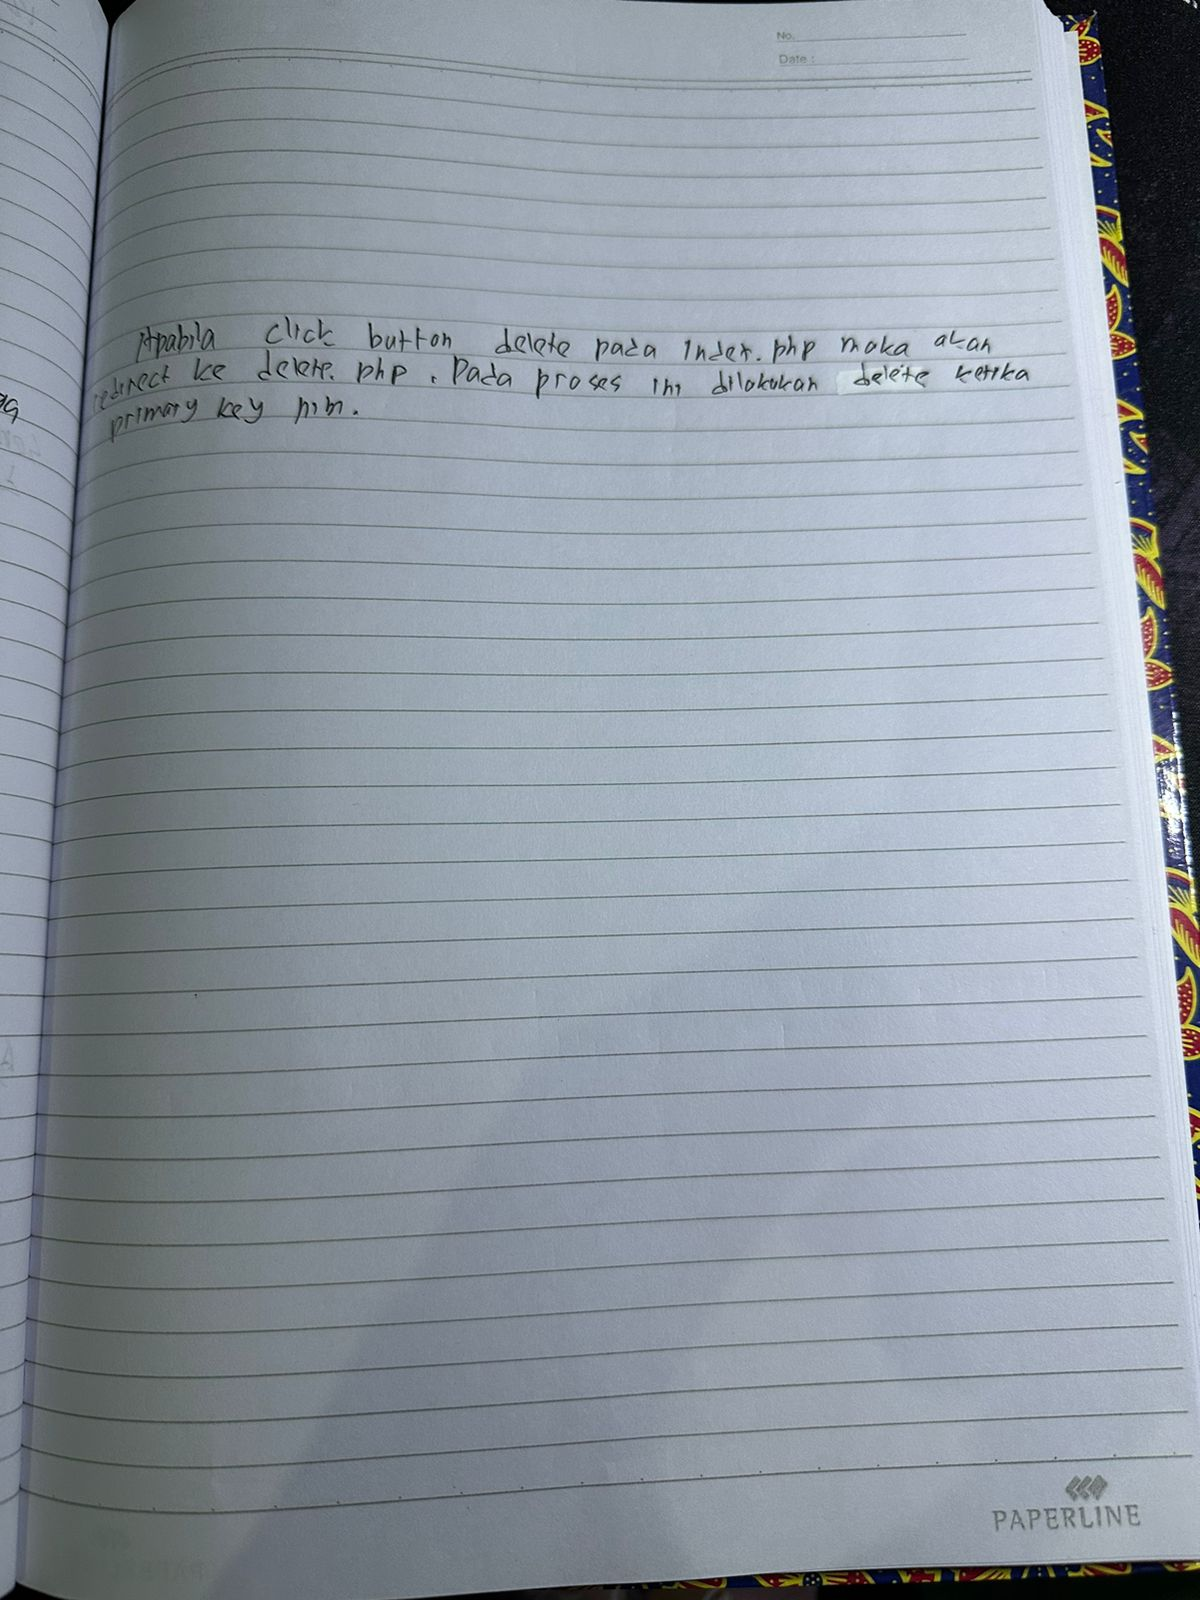 No.
Date :
Apabila click button delete pada index.php maka akan
redirect ke delete.php. Pada proses ini dilakukan delete ketika
primary key nim.
PAPERLINE